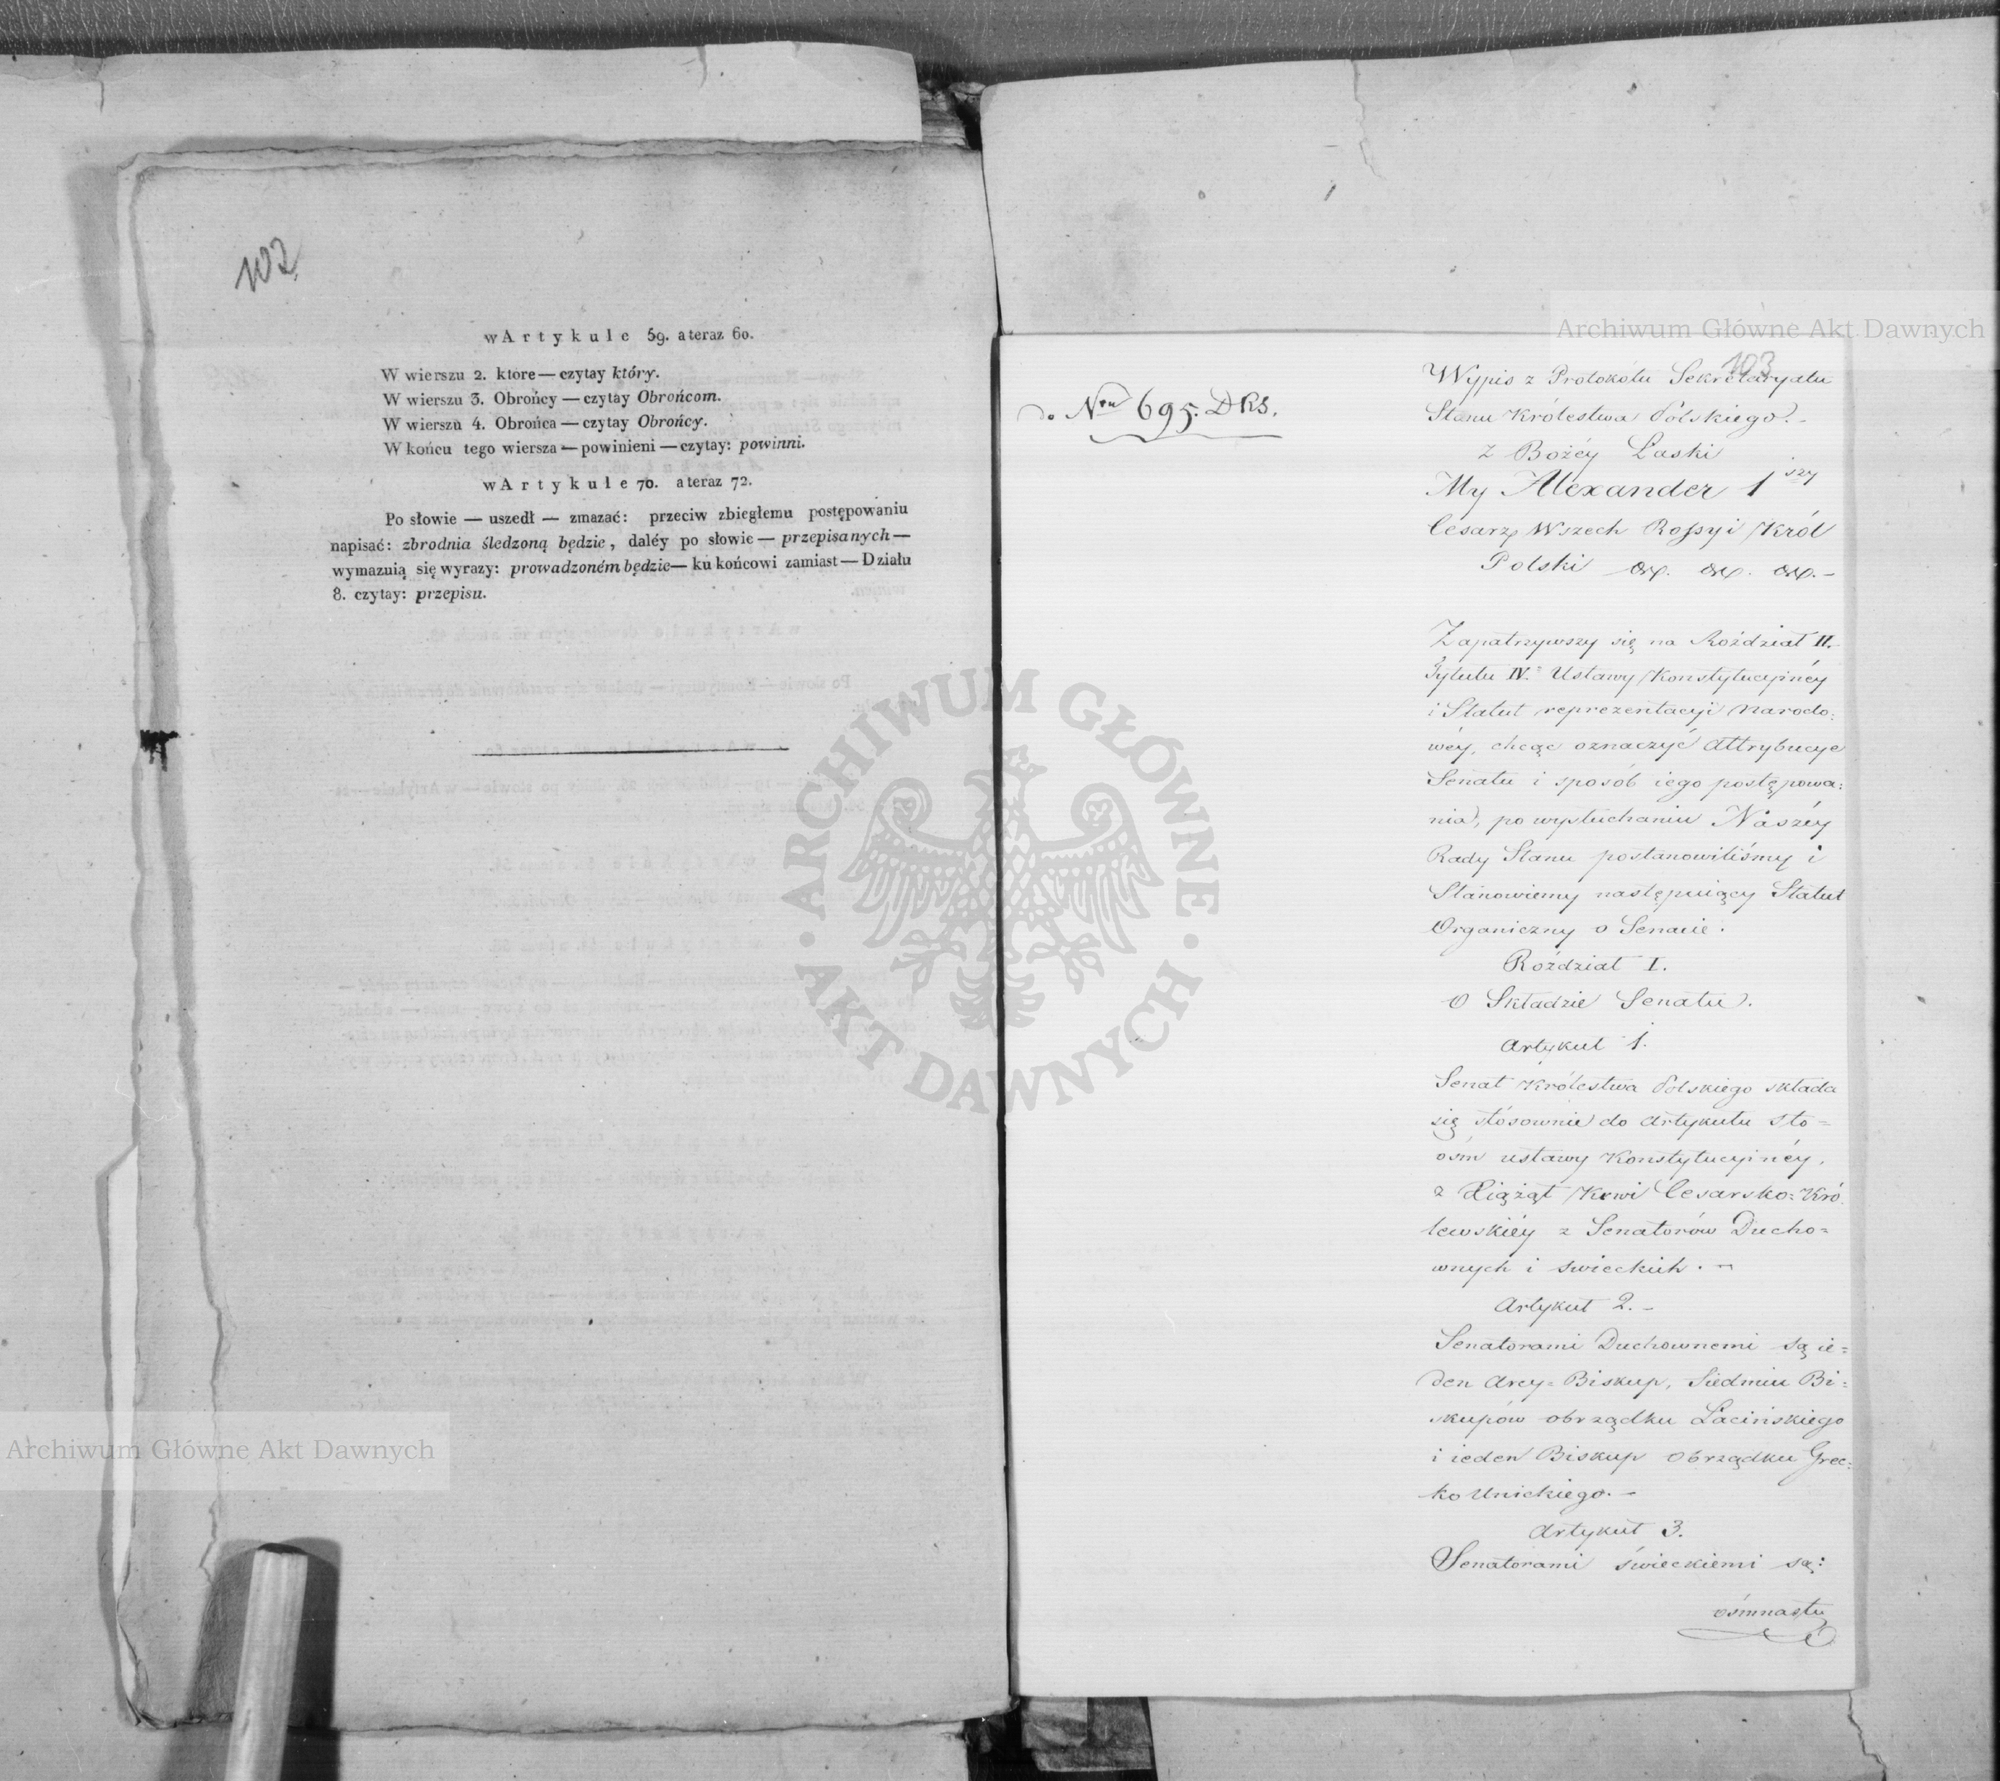 102
w Artykule 59. a teraz 60.
W wierszu 2. które — czytay który.
W wierszu 3. Obrońcy — czytay Obrońcom.
W wierszu 4. Obrońca — czytay Obrońcy.
W końcu tego wiersza — powinieni — czytay: powinni.
w Artykule 70. a teraz 72.
Po słowie — uszedł — zmazać: przeciw zbiegłemu postępowaniu
napisać: zbrodnia śledzoną będzie, daléy po słowie — przepisanych —
wymazuią się wyrazy: prowadzoném będzie — ku końcowi zamiast — Działu
8. czytay: przepisu.
103
do Nru 695. DRS.
Wypis z Protokółu Sekretaryatu
Stanu Królestwa Polskiego. -
z Bożéy Łaski
My Alexander 1szy
Cesarz Wszech Rossyi Król
Polski
Zapatrzywszy się na Rozdział II.
Tytułu IV. Ustawy Konstytucyinéy
i Statut reprezentacyi Narodo:
wéy, chcąc oznaczyć Attrybucye
Senatu i sposób iego postępowa:
nia, po wysłuchaniu Naszéy
Rady Stanu postanowiliśmy i
Stanowiemy następuiący Statut
Organiczny o Senacie.
Rozdział I.
O Składzie Senatu.
Artykuł 1.
Senat Królestwa Polskiego składa
się stósownie do Artykułu sto=
ośm ustawy Konstytucyinéy,
z Xiążąt Krwi Cesarsko=Kró
lewskiéy z Senatorów Ducho=
wnych i świeckich. -
Artykuł 2. -
Senatorami Duchownemi są ie=
den Arcy=Biskup, Siedmiu Bi=
skupów obrządku Łacińskiego
i ieden Biskup obrządku Grec:
ko Unickiego. -
Artykuł 3.
Senatorami świeckiemi są:
ośmnastu
Archiwum Główne Akt Dawnych
Archiwum Główne Akt Dawnych
· ARCHIWUM GŁÓWNE · AKT DAWNYCH